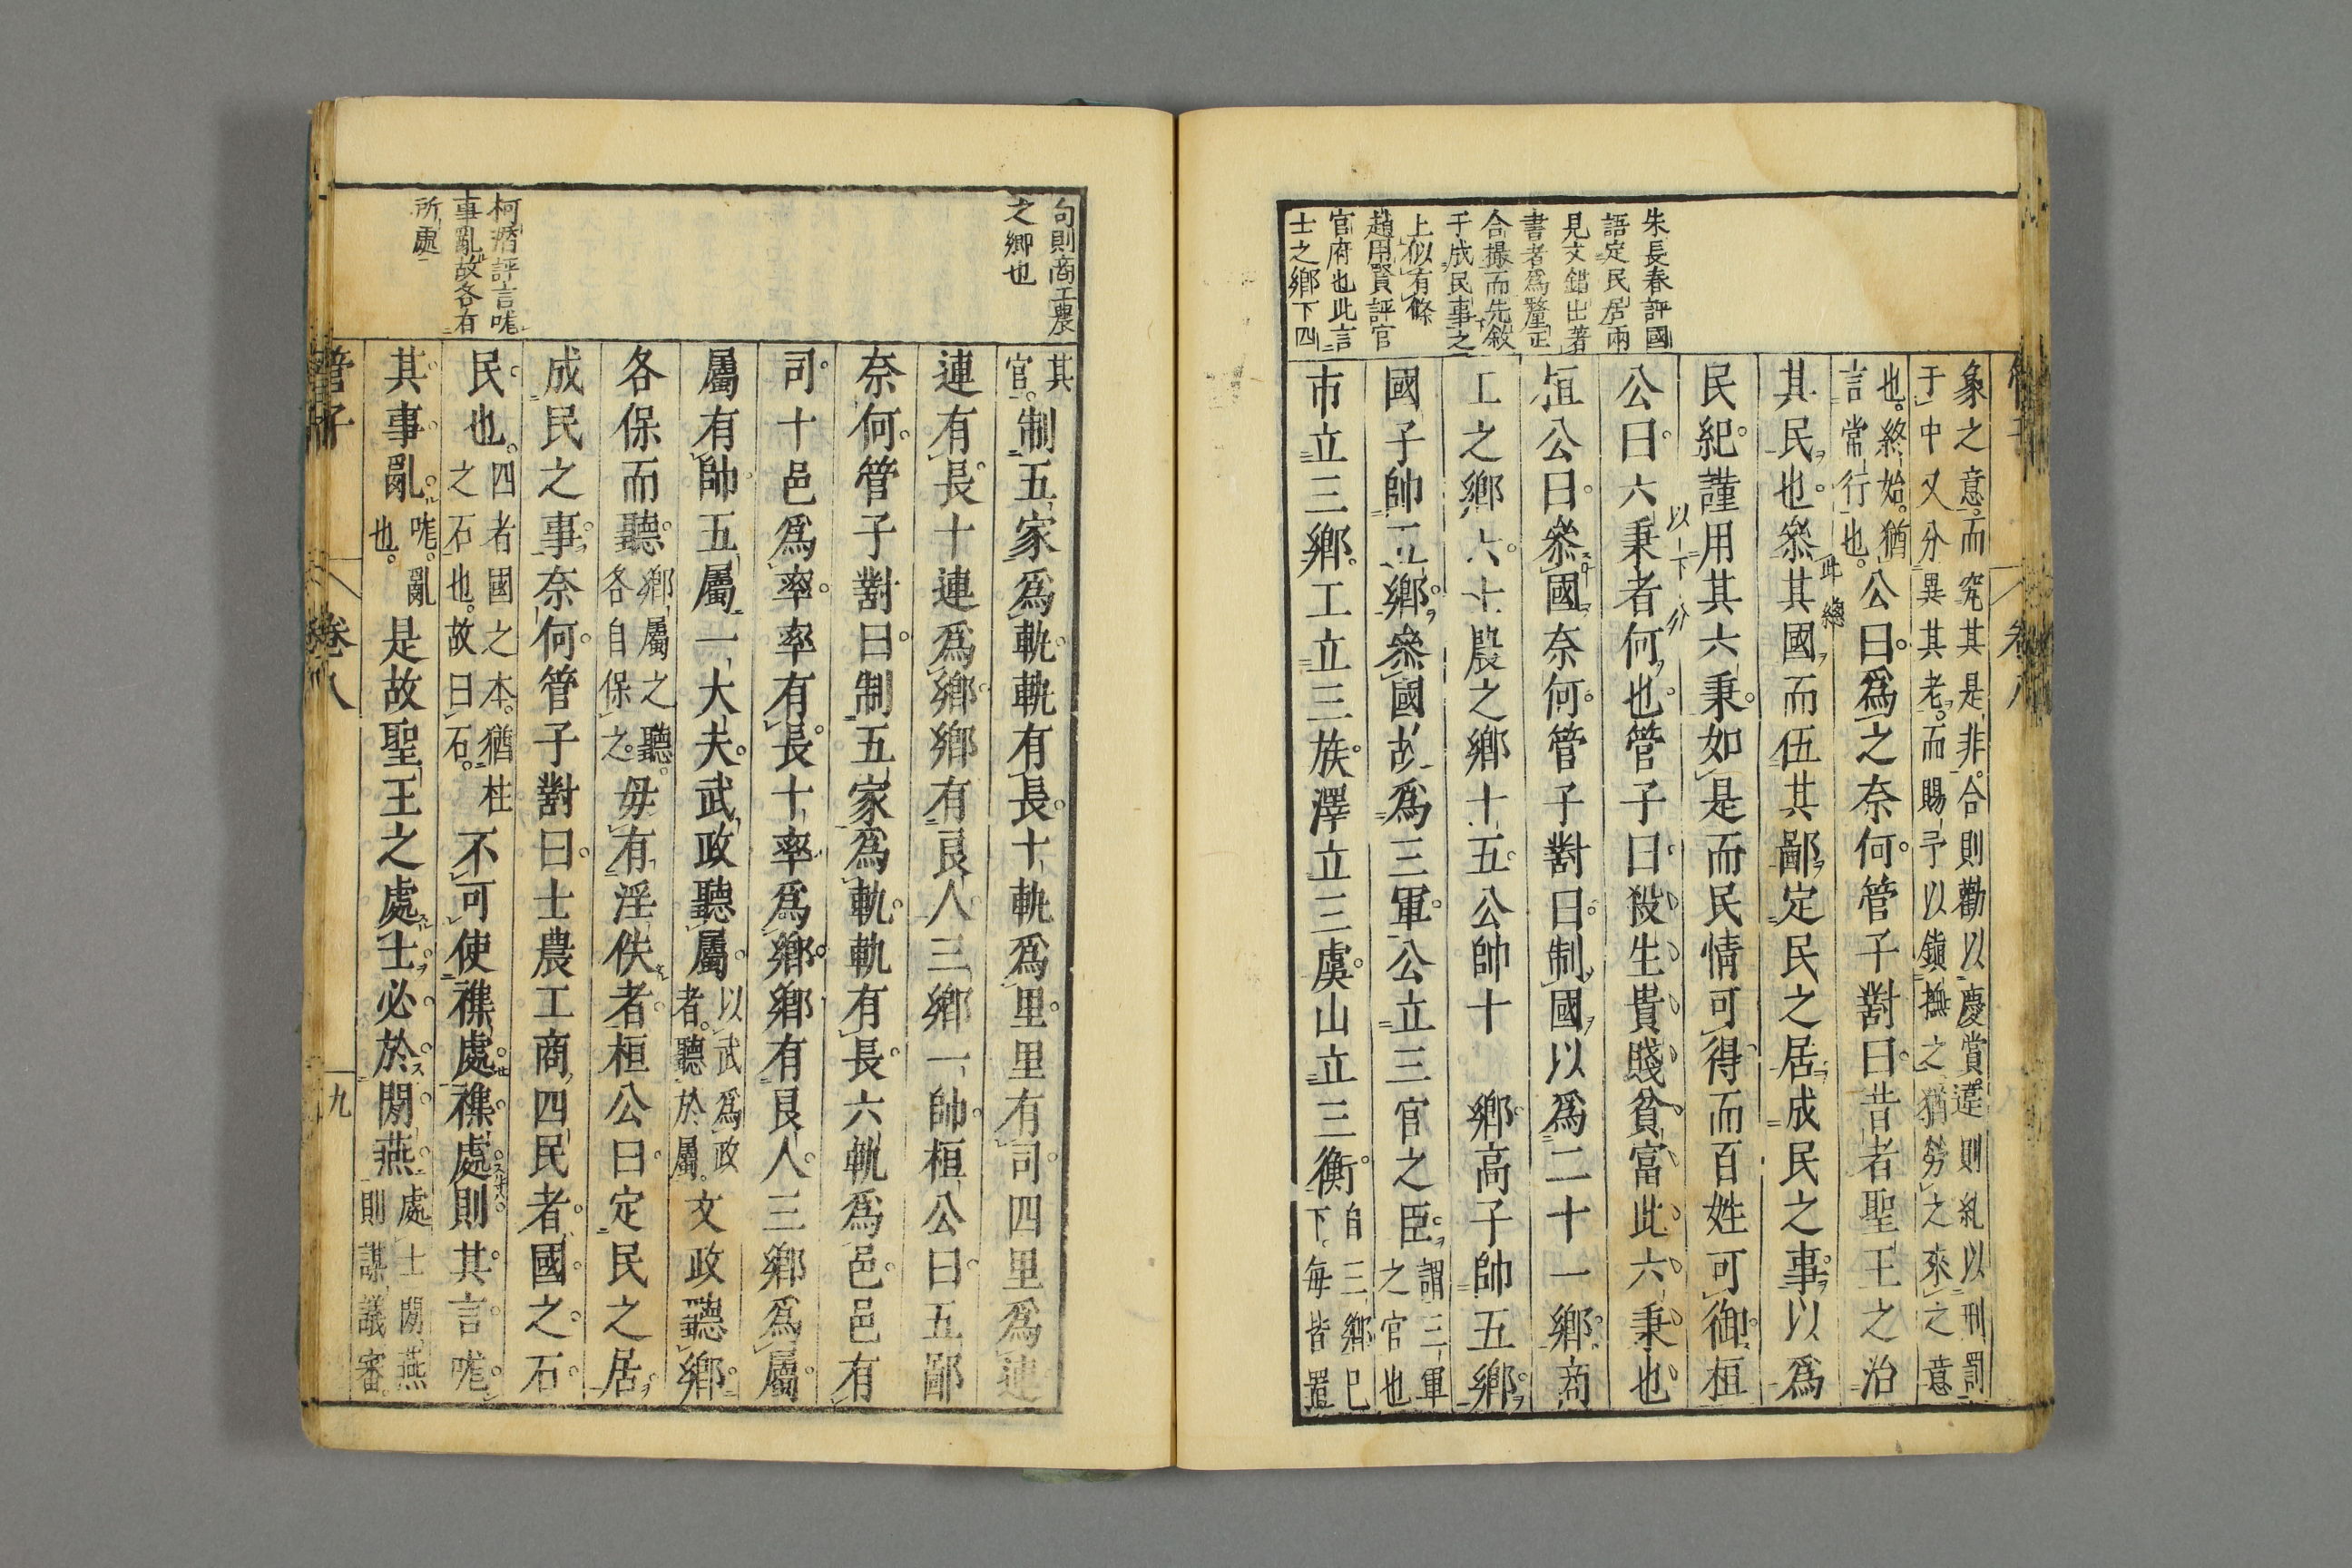 朱長春評國
語定民居兩
見文錯出著
書者爲釐正
合撮而先敘
于成民事之
上似有條
趙用賢評官
官府也此言
士之鄉下四
管子 卷八
象之意而究其是非合則勸以慶賞違則糺以刑罰
于中又分異其老而賜予以鎭撫之猶勞之來之意
也終始猶
言常行也
公曰爲之奈何管子對曰昔者聖王之治
其民也叅其國而伍其鄙定民之居成民之事以爲
此總
民紀謹用其六秉如是而民情可得而百姓可御桓
以下分
公曰六秉者何也管子曰殺生貴賤貧富此六秉也
桓公曰叅國奈何管子對曰制國以爲二十一鄉商
工之鄉六士農之鄉十五公帥十一鄉高子帥五鄉
國子帥五鄉叅國故爲三軍公立三官之臣
謂三軍
之官也
市立三鄉工立三族澤立三虞山立三衡
自三鄉巳
下每皆置
句則商工農
之鄉也
柯潛評言哤
事亂故各有
所處
其
官
制五家爲軌軌有長十軌爲里里有司四里爲連
連有長十連爲鄉鄉有良人三鄉一帥桓公曰五鄙
奈何管子對曰制五家爲軌軌有長六軌爲邑邑有
司十邑爲率率有長十率爲鄉鄉有良人三鄉爲屬
屬有帥五屬一大夫武政聽屬
以武爲政
者聽於屬
文政聽鄉
各保而聽
鄉屬之聽
各自保之
毋有淫佚者桓公曰定民之居
成民之事奈何管子對曰士農工商四民者國之石
民也
四者國之本猶柱
之石也故曰石
不可使襍處襍處則其言哤
其事亂
哤亂
也
是故聖王之處士必於閒燕
處士閒燕
則謀議審
管子 卷八 九